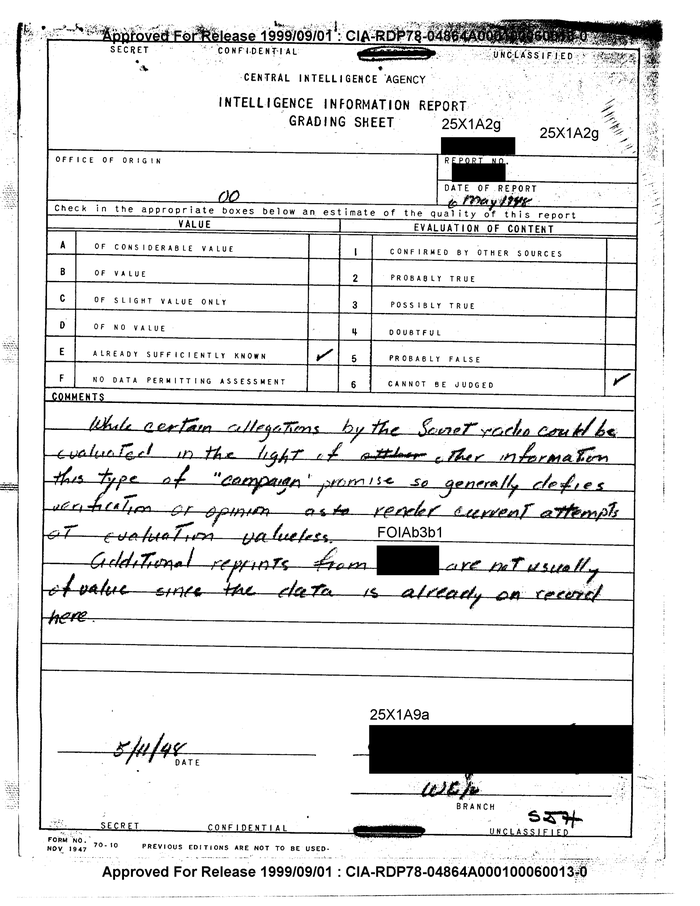 Approved For Release 1999/09/01 : CIA-RDP78-04864A000100060013-0
SECRET CONFIDENTIAL UNCLASSIFIED
CENTRAL INTELLIGENCE AGENCY
INTELLIGENCE INFORMATION REPORT
GRADING SHEET
25X1A2g
25X1A2g
OFFICE OF ORIGIN
REPORT NO.
00
DATE OF REPORT
6 May 1948
Check in the appropriate boxes below an estimate of the quality of this report
VALUE EVALUATION OF CONTENT
A OF CONSIDERABLE VALUE 1 CONFIRMED BY OTHER SOURCES
B OF VALUE 2 PROBABLY TRUE
C OF SLIGHT VALUE ONLY 3 POSSIBLY TRUE
D OF NO VALUE 4 DOUBTFUL
E ALREADY SUFFICIENTLY KNOWN ✓ 5 PROBABLY FALSE
F NO DATA PERMITTING ASSESSMENT 6 CANNOT BE JUDGED ✓
COMMENTS
While certain allegations by the Soviet radio could be
evaluated in the light of other information
this type of "campaign" promise so generally defies
verification or opinion as to render current attempts
at evaluation valueless.
FOIAb3b1
Additional reprints from are not usually
of value since the data is already on record
here.
25X1A9a
5/11/48
DATE
BRANCH
SECRET CONFIDENTIAL UNCLASSIFIED
FORM NO. 70-10 PREVIOUS EDITIONS ARE NOT TO BE USED.
NOV 1947
Approved For Release 1999/09/01 : CIA-RDP78-04864A000100060013-0